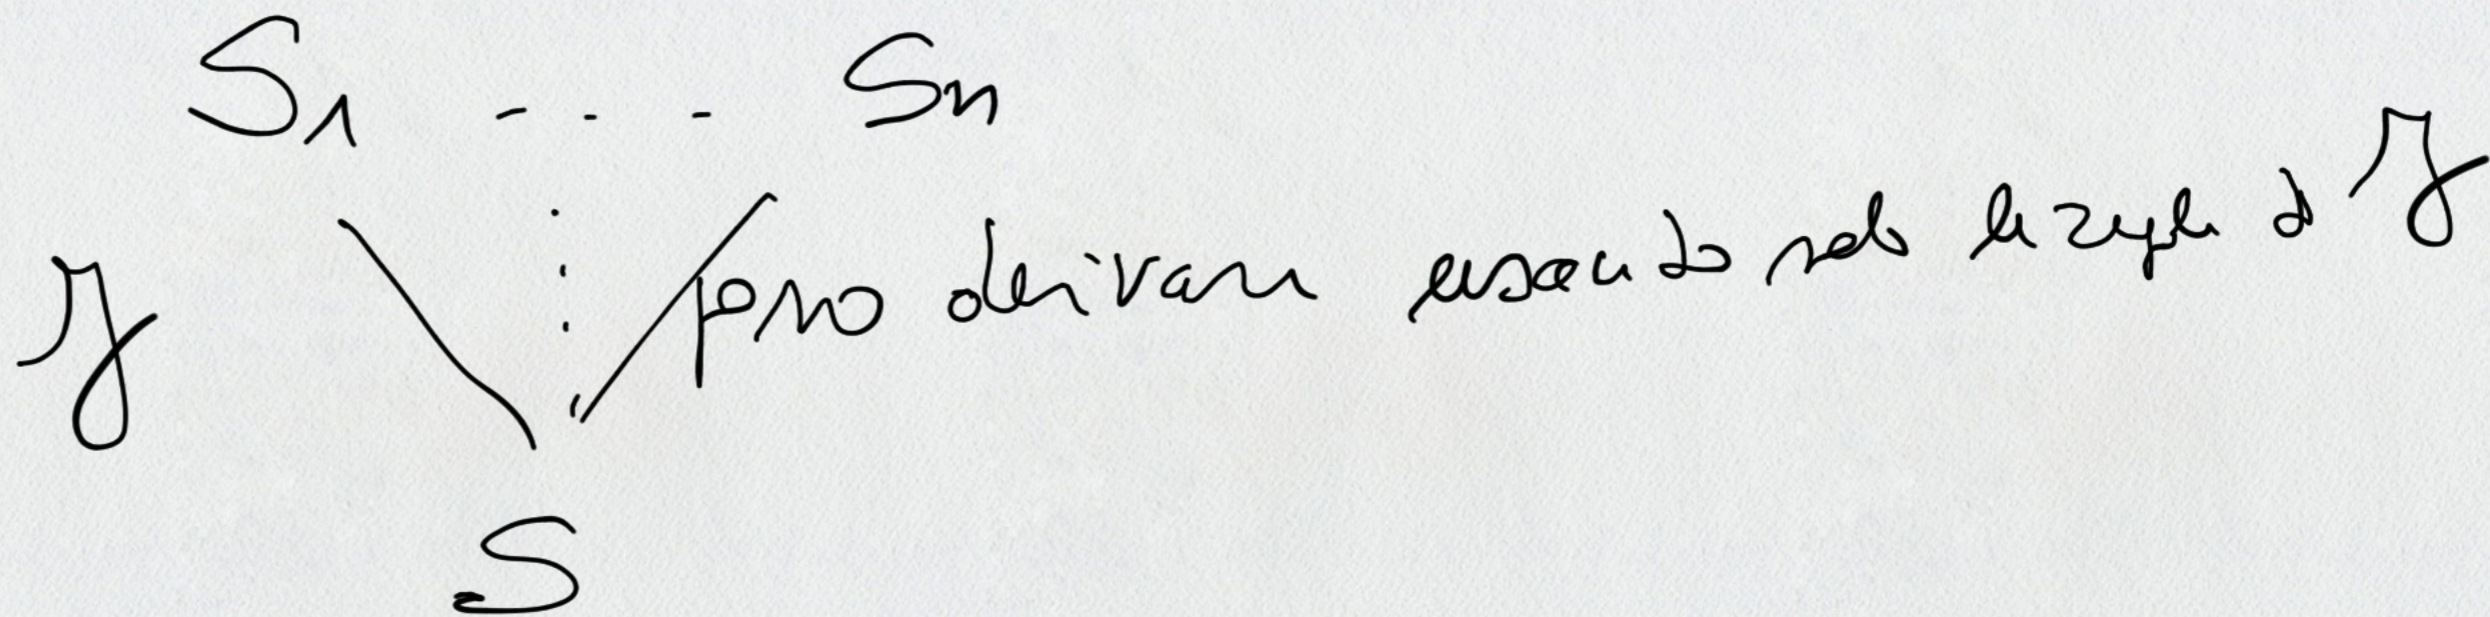 S1 - - - Sn
y può derivare usando solo le regole di y
S